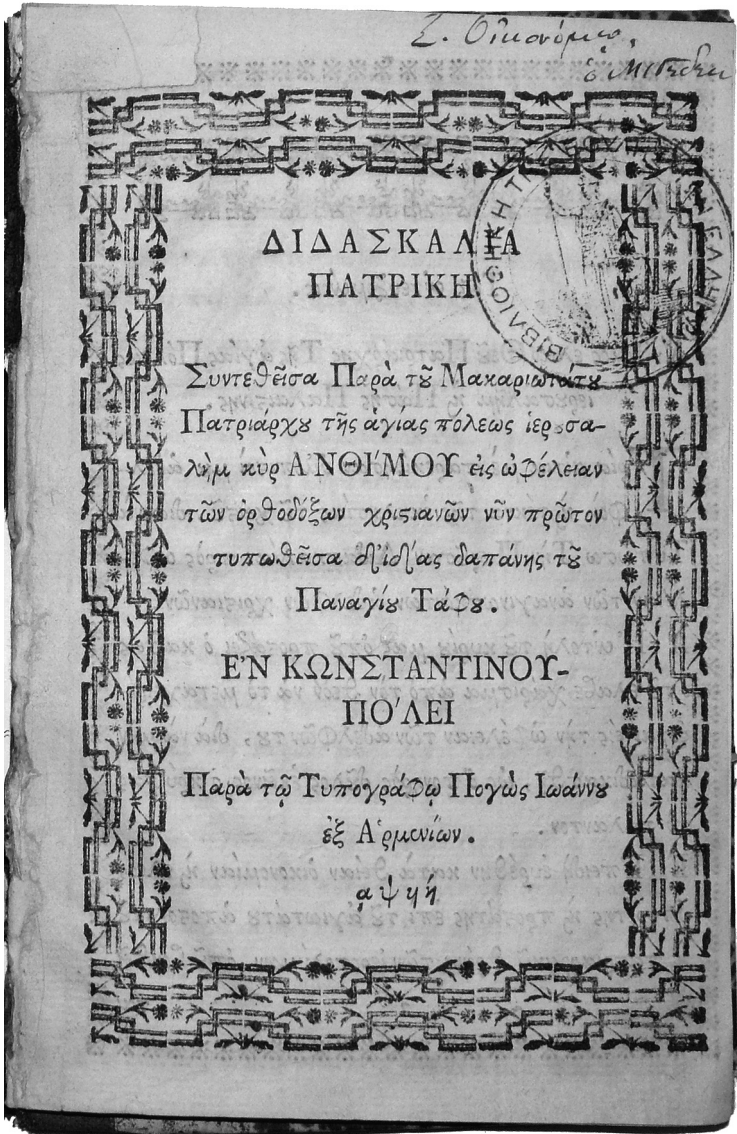 Σ. Οἰκονόμῳ,
ΒΙΒΛΙΟΘΗΚΗ
ΔΙΔΑΣΚΑΛΙΑ
ΠΑΤΡΙΚΗ
Συντεθεῖσα Παρὰ τȣ͂ Μακαριωτάτȣ
Πατριάρχȣ τῆς ἁγίας πόλεως ἱερȣσα-
λὴμ κὺρ Α᾿ΝΘΙ΄ΜΟΥ εἰς ὠφέλειαν
τῶν ὀρθοδόξων χριϛιανῶν νῦν πρῶτον
τυπωθεῖσα δι᾿ ἰδίας δαπάνης τȣ͂
Παναγίȣ Τάφȣ.
Ε᾿Ν ΚΩΝΣΤΑΝΤΙΝΟΥ-
ΠΟ΄ΛΕΙ
Παρὰ τῷ Τυπογράφῳ Πογὼς Ιωάννȣ
ἐξ Α῾ρμενίων.
͵αψϟή